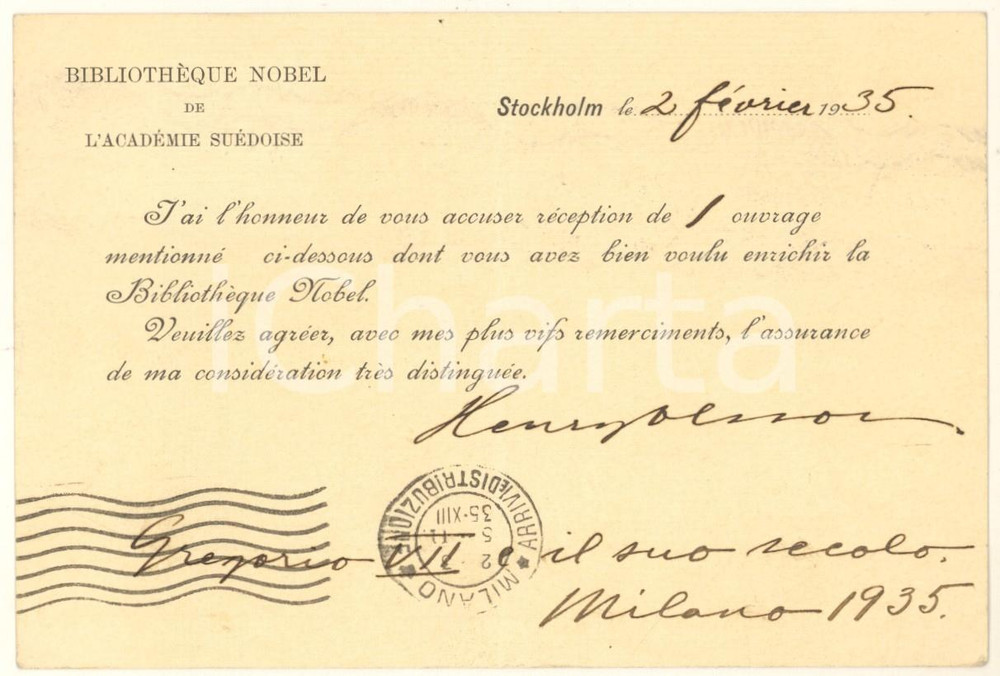 BIBLIOTHÈQUE NOBEL
DE
L'ACADÉMIE SUÉDOISE
Stockholm le 2 février 1935.
J'ai l'honneur de vous accuser réception de 1 ouvrage
mentionné ci-dessous dont vous avez bien voulu enrichir la
Bibliothèque Nobel.
Veuillez agréer, avec mes plus vifs remerciments, l'assurance
de ma considération très distinguée.
Henry Olsson.
MILANO ARRIVI E DISTRIBUZIONE
35·XIII
Gregorio VII e il suo secolo.
Milano 1935.
iCharta